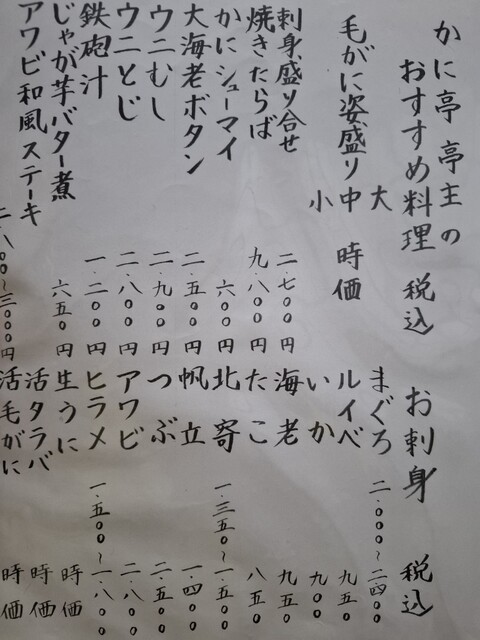 かに亭 亭主の
おすすめ料理 税込
毛がに姿盛り 大 中 小 時価
刺身盛り合せ 二.七〇〇円
焼きたらば 九.八〇〇円
かにシューマイ 六〇〇円
大海老ボタン 二.五〇〇円
ウニむし 二.九〇〇円
ウニとじ 二.八〇〇円
鉄砲汁 一.二〇〇円
じゃが芋バター煮 六五〇円
アワビ和風ステーキ 二.八〇〇〜三〇〇〇円
お刺身 税込
まぐろ 二.〇〇〇〜二四〇〇
ルイベ 九五〇
いか 九〇〇
海老 九五〇
たこ 八五〇
北寄 一.三五〇〜一.五〇〇
帆立 一.四〇〇
つぶ 二.五〇〇
アワビ 二.八〇〇
ヒラメ 一.五〇〇〜一.八〇〇
生うに 時価
活タラバ 時価
活毛がに 時価